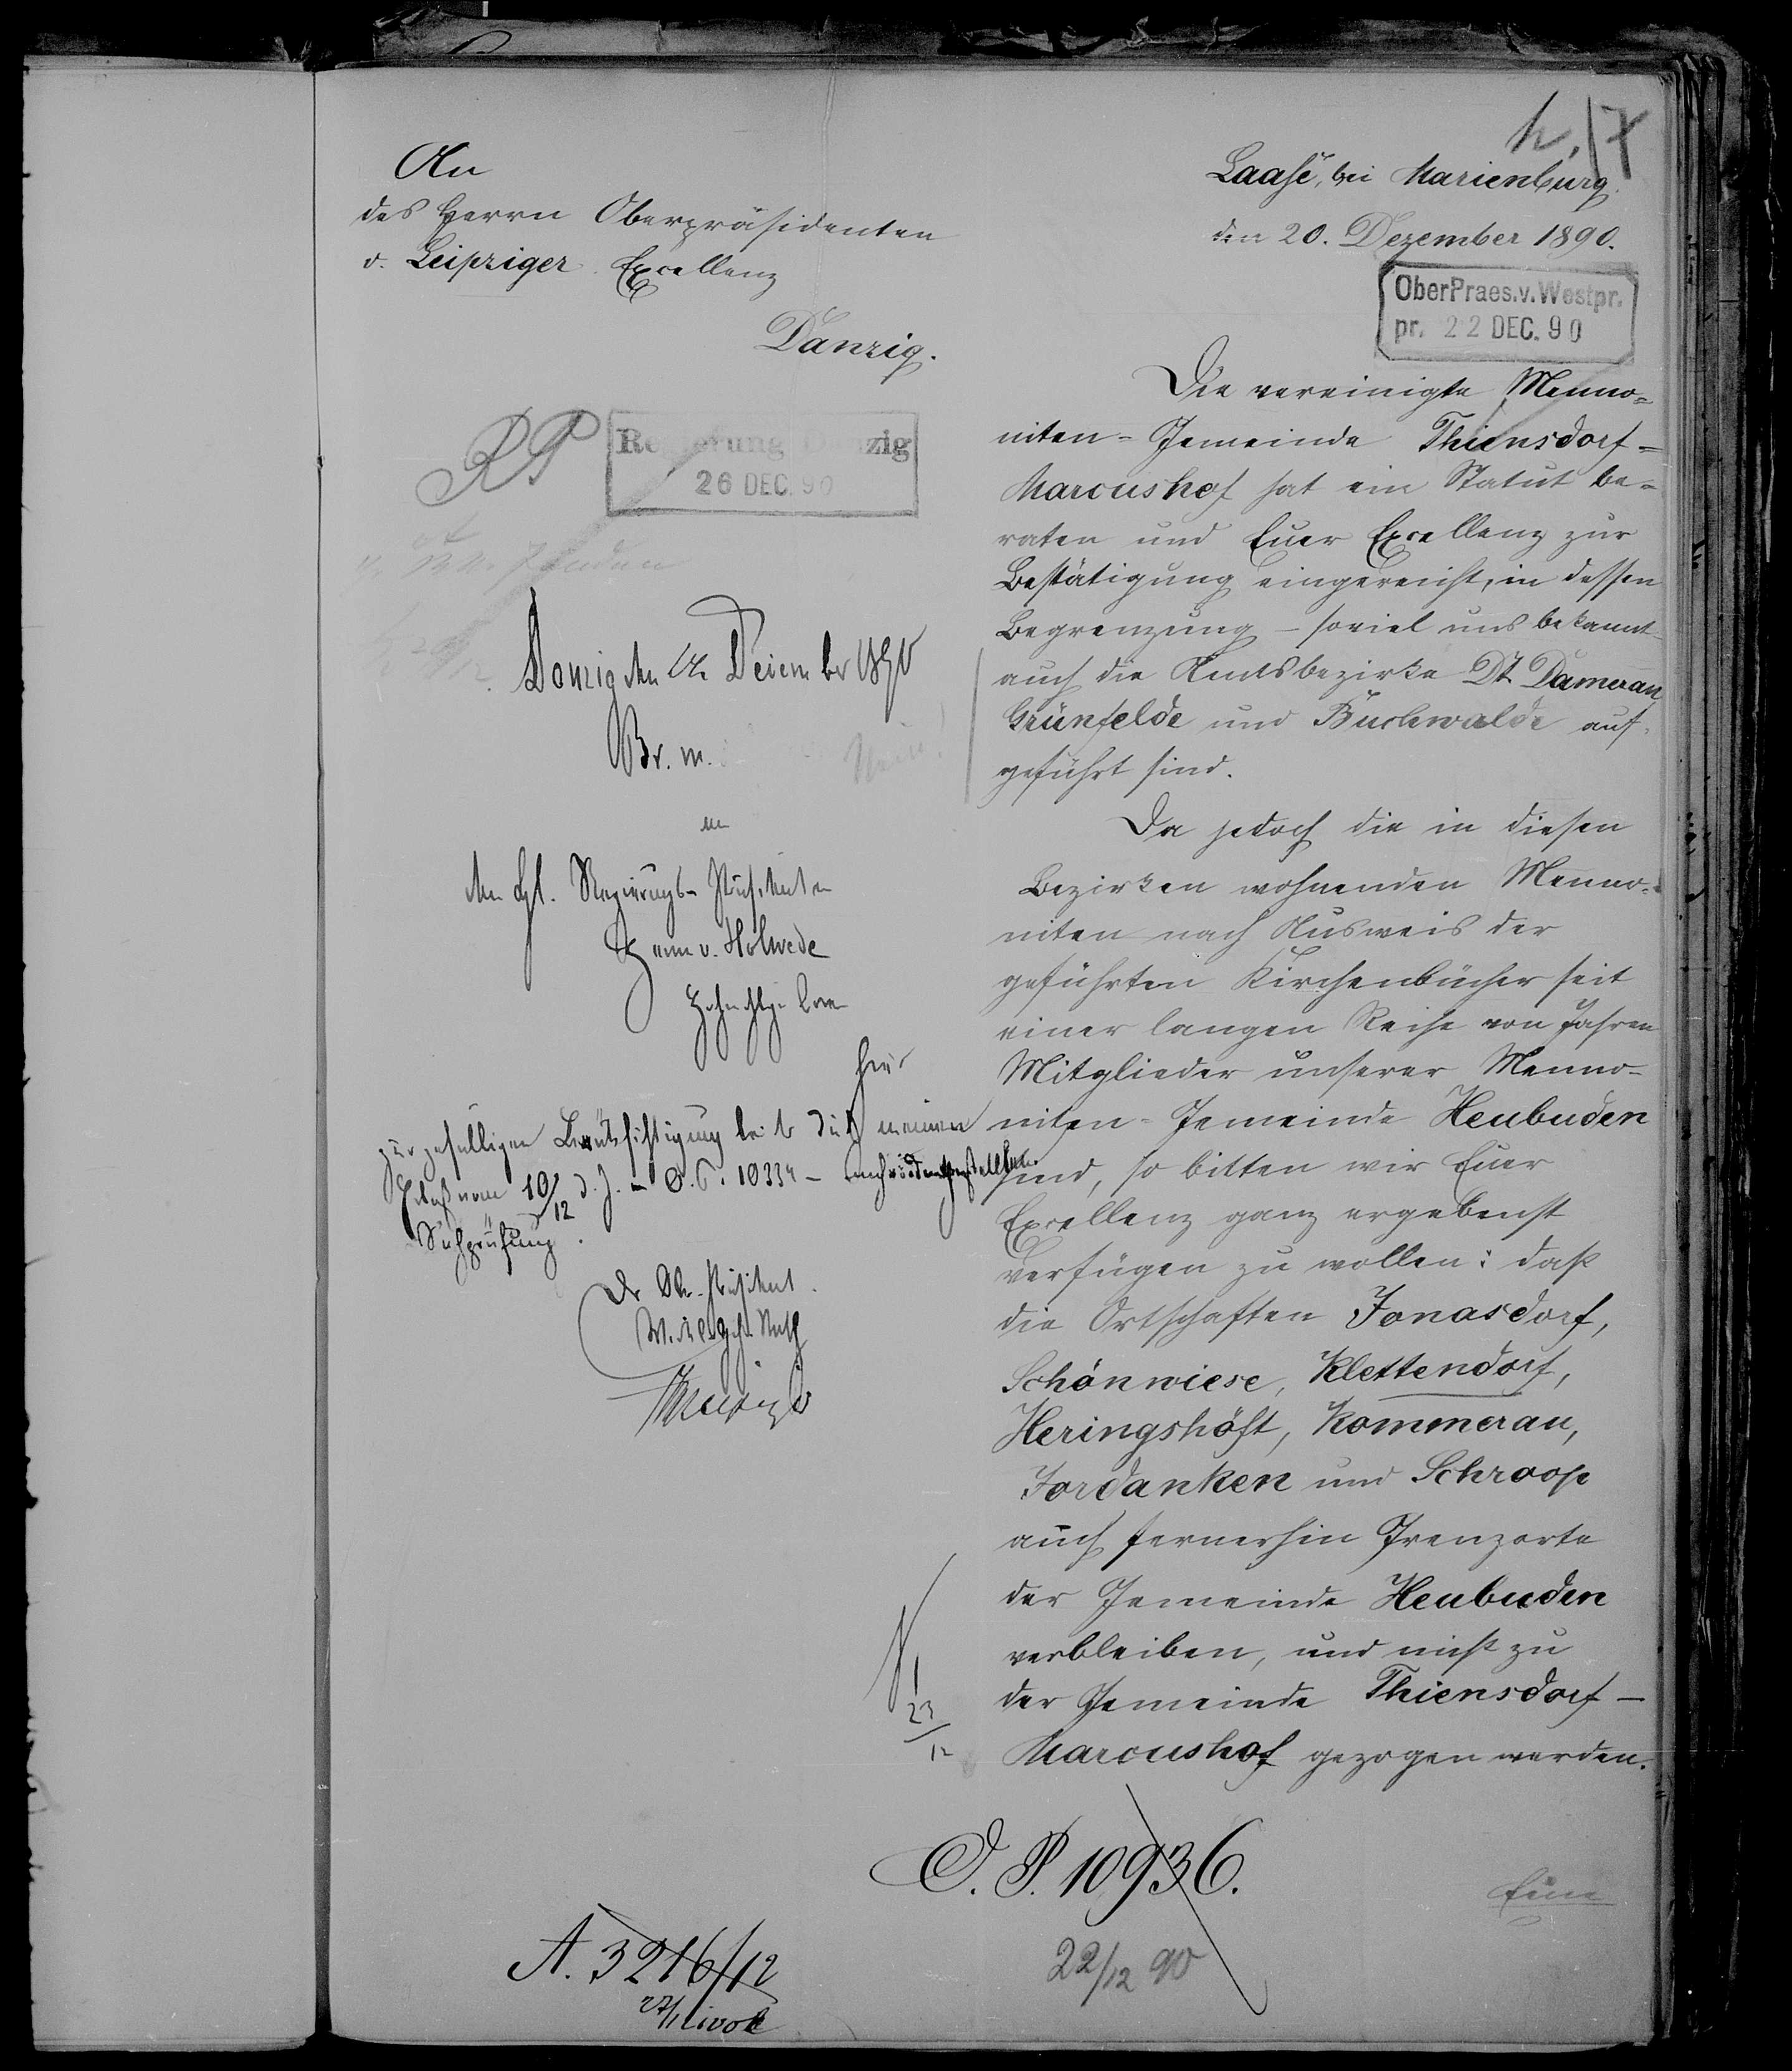 An
des Herrn Oberpräsidenten
v. Leipziger Excellenz
Danzig.
Laase, bei Marienburg.
den 20. Dezember 1890.
OberPraes.v.Westpr.
pr. 22 DEC. 90
Die vereinigte Menno-
niten-Gemeinde Thiensdorf-
Marcushof hat ein Statut be-
raten und Euer Excellenz zur
Bestätigung eingereicht, in dessen
Begrenzung - soviel uns bekannt -
auch die Amtsbezirke Dt. Damerau
Grünfelde und Buchwalde auf-
geführt sind.
Da jedoch die in diesen
Bezirken wohnenden Menno-
niten nach Ausweis der
geführten Kirchenbücher seit
einer langen Reihe von Jahren
Mitglieder unserer Menno-
niten-Gemeinde Heubuden
sind, so bitten wir Euer
Excellenz ganz ergebenst
verfügen zu wollen: daß
die Ortschaften Jonasdorf,
Schönwiese, Klettendorf,
Heringshöft, Kommerau,
Jordanken und Schroop
auch fernerhin Grenzorte
der Gemeinde Heubuden
verbleiben, und nicht zu
der Gemeinde Thiensdorf-
Marcushof gezogen werden.
Eure
RP
Regierung Danzig
26 DEC. 90
Danzig den Dezember 1890
Br. m.
an
den Kgl. Regierungs-Präsidenten
Herrn v. Holwede
Hochwohlgeboren
hier
zur gefälligen Berücksichtigung bei der durch meinen
Erlaß vom 10/12 d. J. - O. P. 10334 -
Der Ober-Präsident.
Leipziger
23/12
O. P. 10936.
22/12 90
A. 3216/12